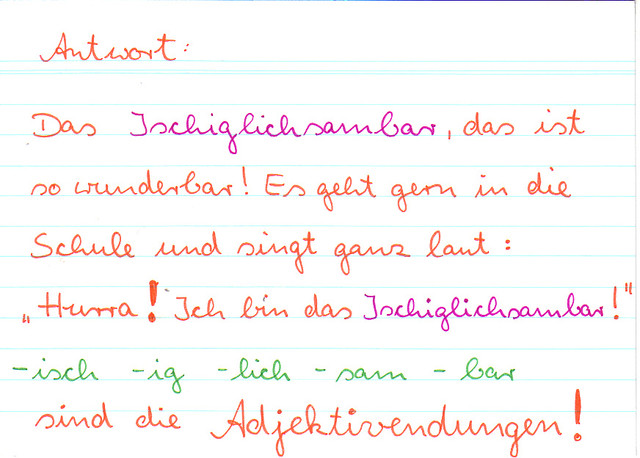 Antwort:
Das Ischiglichsambar, das ist
so wunderbar! Es geht gern in die
Schule und singt ganz laut:
„Hurra! Ich bin das Ischiglichsambar!"
-isch -ig -lich -sam -bar
sind die Adjektivendungen!